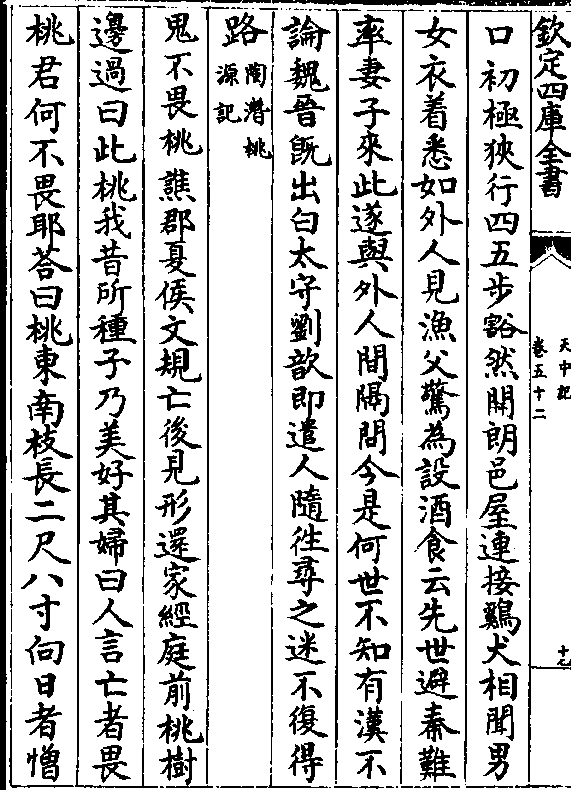 欽定四庫全書
天中記
卷五十二
十七
口初極狹行四五步豁然開朗邑屋連接鷄犬相聞男
女衣着悉如外人見漁父驚為設酒食云先世避秦難
率妻子來此遂與外人間隔問今是何世不知有漢不
論魏晉既出白太守劉歆即遣人隨徃尋之迷不復得
路陶潛桃
源記
鬼不畏桃譙郡夏侯文規亡後見形還家經庭前桃樹
邊過曰此桃我昔所種子乃美好其婦曰人言亡者畏
桃君何不畏耶荅曰桃東南枝長二尺八寸向日者憎